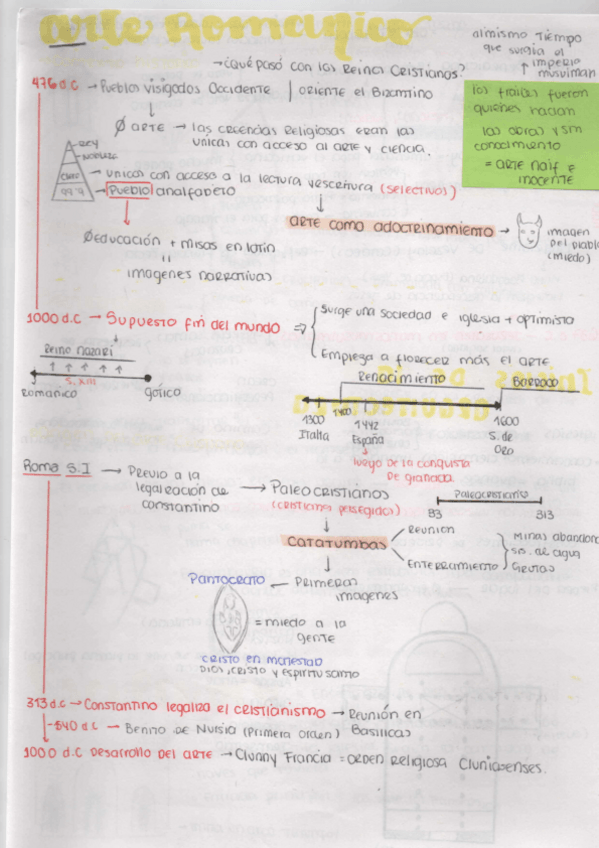 arte Romanico
al mismo tiempo
que surgia el
imperio
musulman
→ ¿qué pasó con los Reinos Cristianos?
476 d.C → Pueblos visigodos Occidente | ORIENTE el Bizantino
los frailes fueron
quienes hacian
las obras y sm
conocimiento
= arte naif e
inocente
Ø ARTE → las creencias Religiosas eran las
unicas con acceso al arte y ciencia.
REY
NOBLEZA
CLERO
99%
→ unicos con acceso a la lectura y escritura (selectivo)
→ Pueblo analfabeto
ARTE como adoctrinamiento → imagen
del diablo
(miedo)
Ø educación + misas en latin
=
imagenes narrativas
1000 d.C → Supuesto fin del mundo ⇒ Surge una sociedad e iglesia + optimista
Empieza a florecer más el arte
Reino nazari
S. XIII
ROMANICO
gótico
Renacimiento
Barroco
1300
Italia
1400
1492
España
1600
S. de
ORO
luego de la conquista
de granada.
Roma S.I → Previo a la
legalización de
constantino
→ Paleocristianos
(cristiano perseguido)
Paleocristiano
33
313
CATATUMBAS
Reunion
Enterramiento
Minas abandon
sis. de agua
Grutas
PANTOCRATO ← Primeras
imagenes
= miedo a la
gente
CRISTO en majestad
DIOS, CRISTO y espiritu santo
313 d.C → Constantino legaliza el cristianismo → Reunión en
Basilicas
-540 d.C → Benito de Nursia (Primera orden)
1000 d.C Desarrollo del arte → Clunny Francia = orden religiosa Cluniasenses.